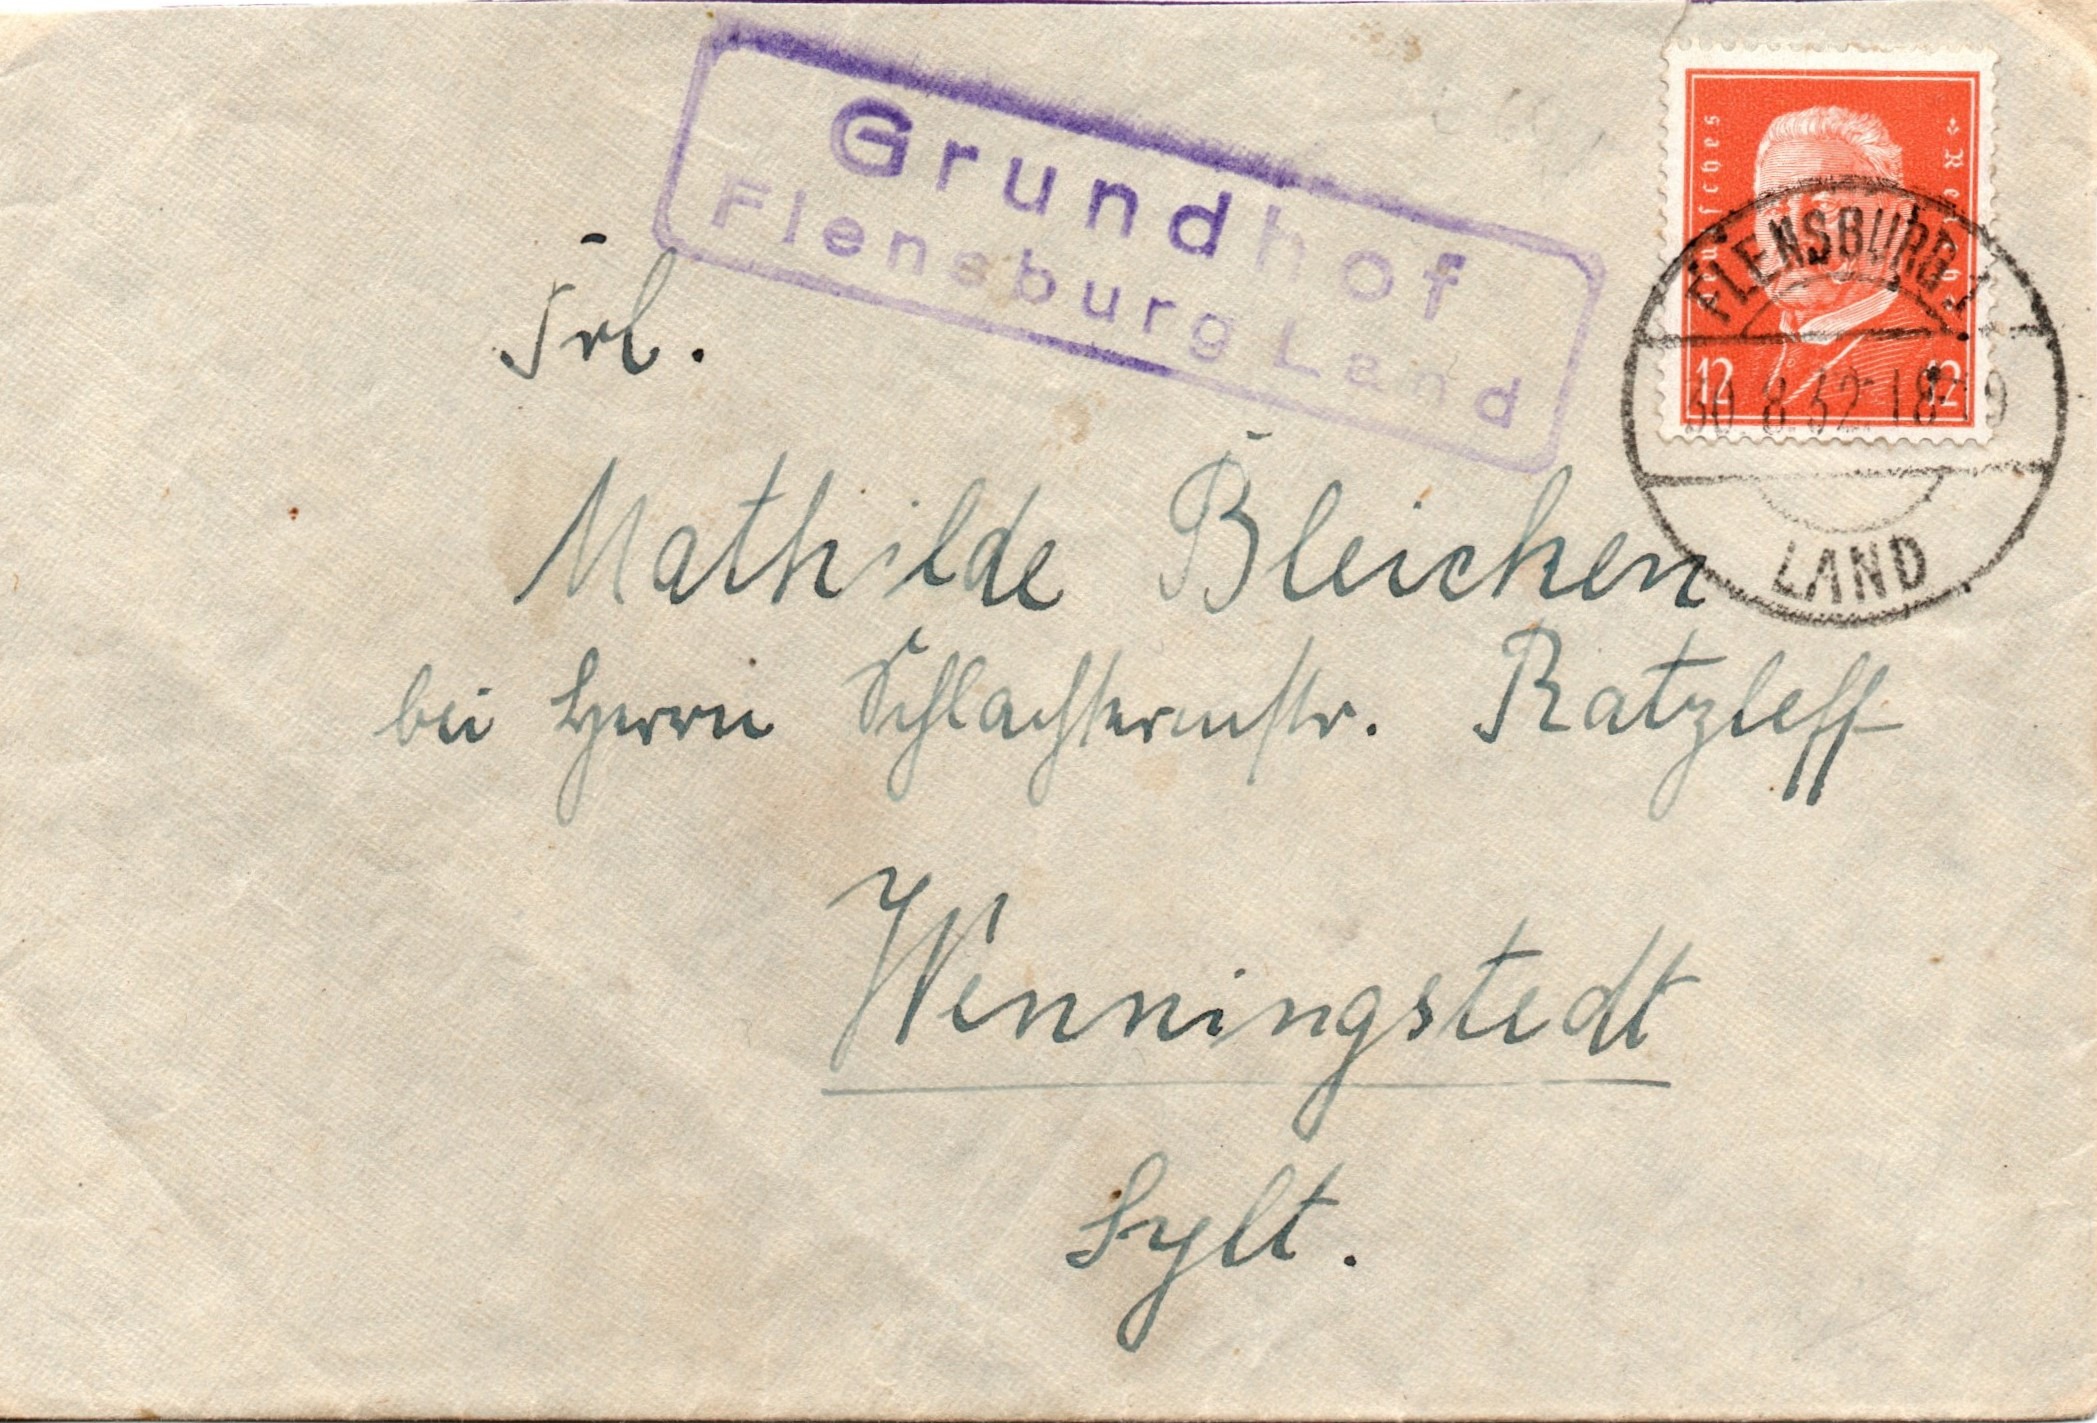 Grundhof
Flensburg Land
Deutsches Reich
12 12
FLENSBURG 1
30.8.32.18-19
LAND
Frl.
Mathilde Bleicken
bei Herrn Schlachtermstr. Ratzleff
Wenningstedt
Sylt.